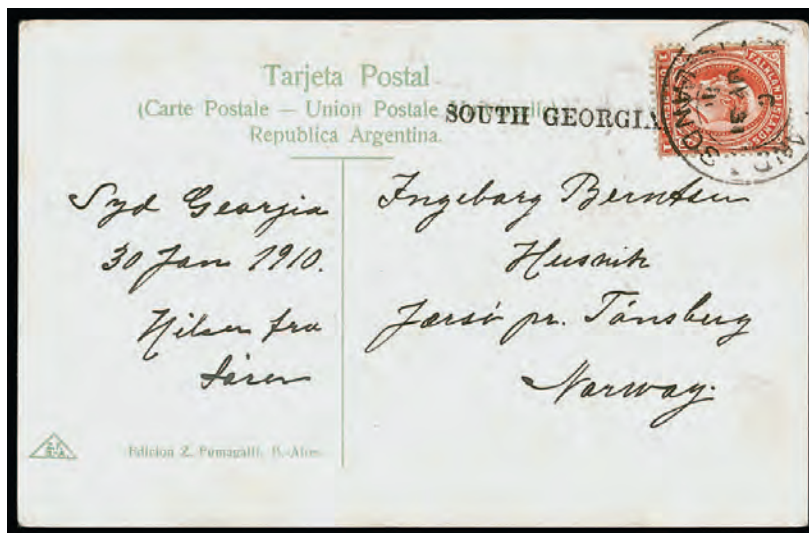 Tarjeta Postal
(Carte Postale — Union Postale
Republica Argentina.
SOUTH GEORGIA
FALKLAND ISLANDS
Syd Georgia
30 Jan 1910.
Hilsen fra
Søren
Ingeborg Berntsen
Husvik
Jærsø pr. Tønsberg
Norway.
Edicion Z. Fumagalli, B.-Aires